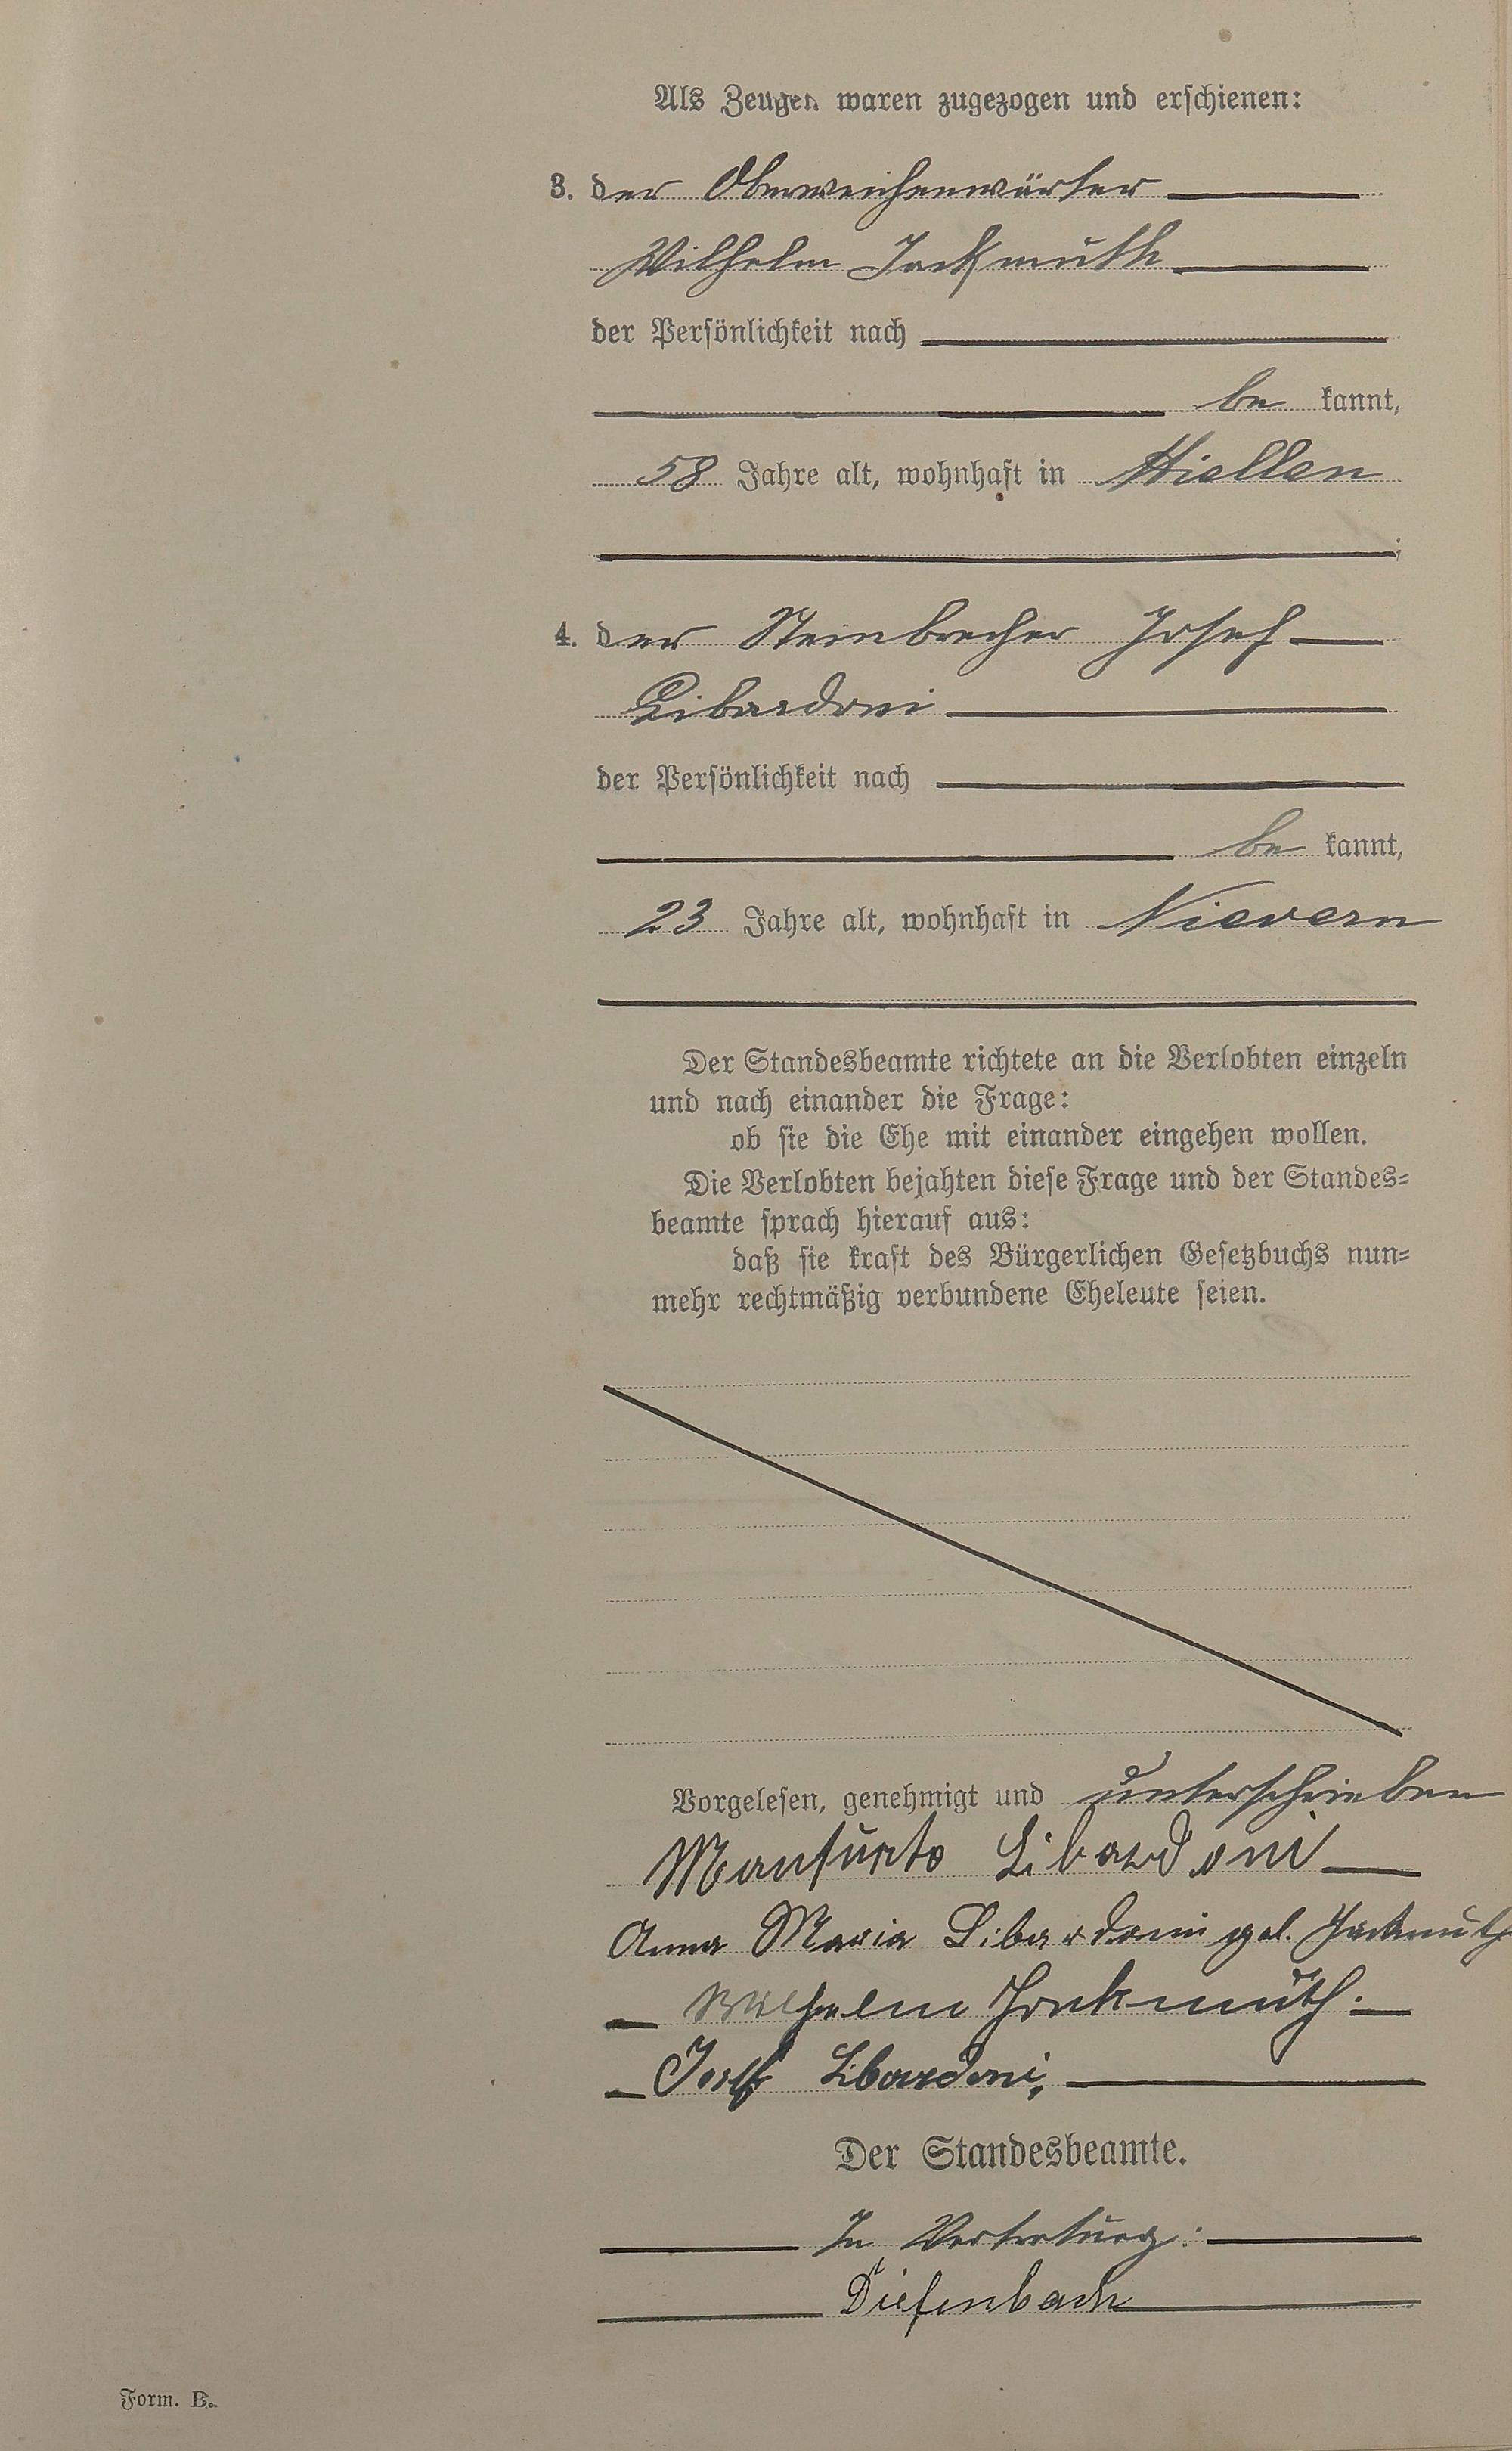 Als Zeugen waren zugezogen und erschienen:
3. der Oberweichenwärter
Wilhelm Jackmuth
der Persönlichkeit nach
be kannt,
58 Jahre alt, wohnhaft in Miellen
;
4. der Steinbrecher Josef
Libardoni
der Persönlichkeit nach
be kannt,
23 Jahre alt, wohnhaft in Nievern
Der Standesbeamte richtete an die Verlobten einzeln
und nach einander die Frage:
ob sie die Ehe mit einander eingehen wollen.
Die Verlobten bejahten diese Frage und der Standes-
beamte sprach hierauf aus:
daß sie kraft des Bürgerlichen Gesetzbuchs nun-
mehr rechtmäßig verbundene Eheleute seien.
Vorgelesen, genehmigt und unterschrieben
Mansueto Libardoni
Anna Maria Libardoni geb. Jackmuth
Wilhelm Jackmuth.
Josef Libardoni,
Der Standesbeamte.
In Vertretung:
Diefenbach
Form. B.